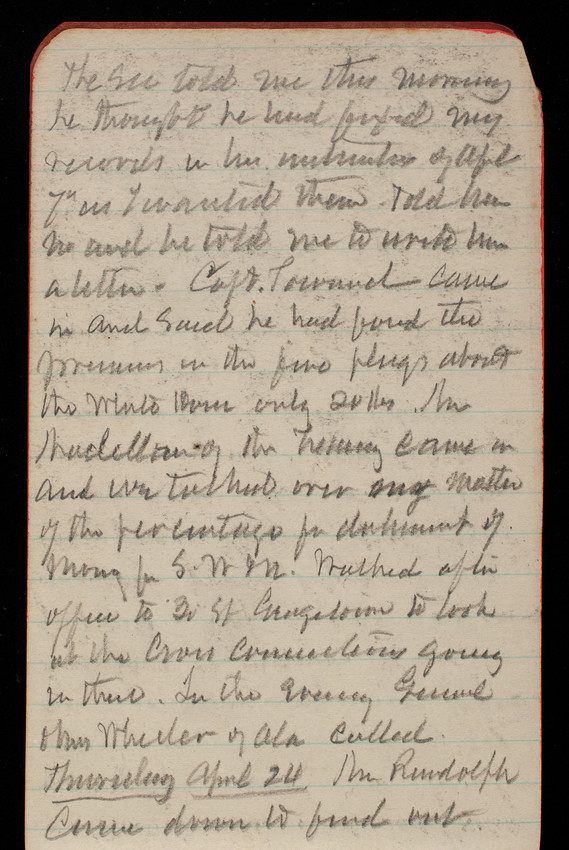 The Sec told me this morning
he thought he had fixed my
records in his instructions of Apl
7" as I wanted them. Told him
no and he told me to write him
a letter. Capt. Townsend came
in and said he had found the
pressures in the fire plugs about
the White House only 20 lbs. Mr
of the Treasury came in
and we talked over my matter
of the percentage for
of
Money for S. W. N. Walked after
office to 30 St Georgetown to look
at the Cross Connections going
in there. In the evening General
Wheeler of Ala called.
Thursday April 24 Mr Rudolph
Came down to find out